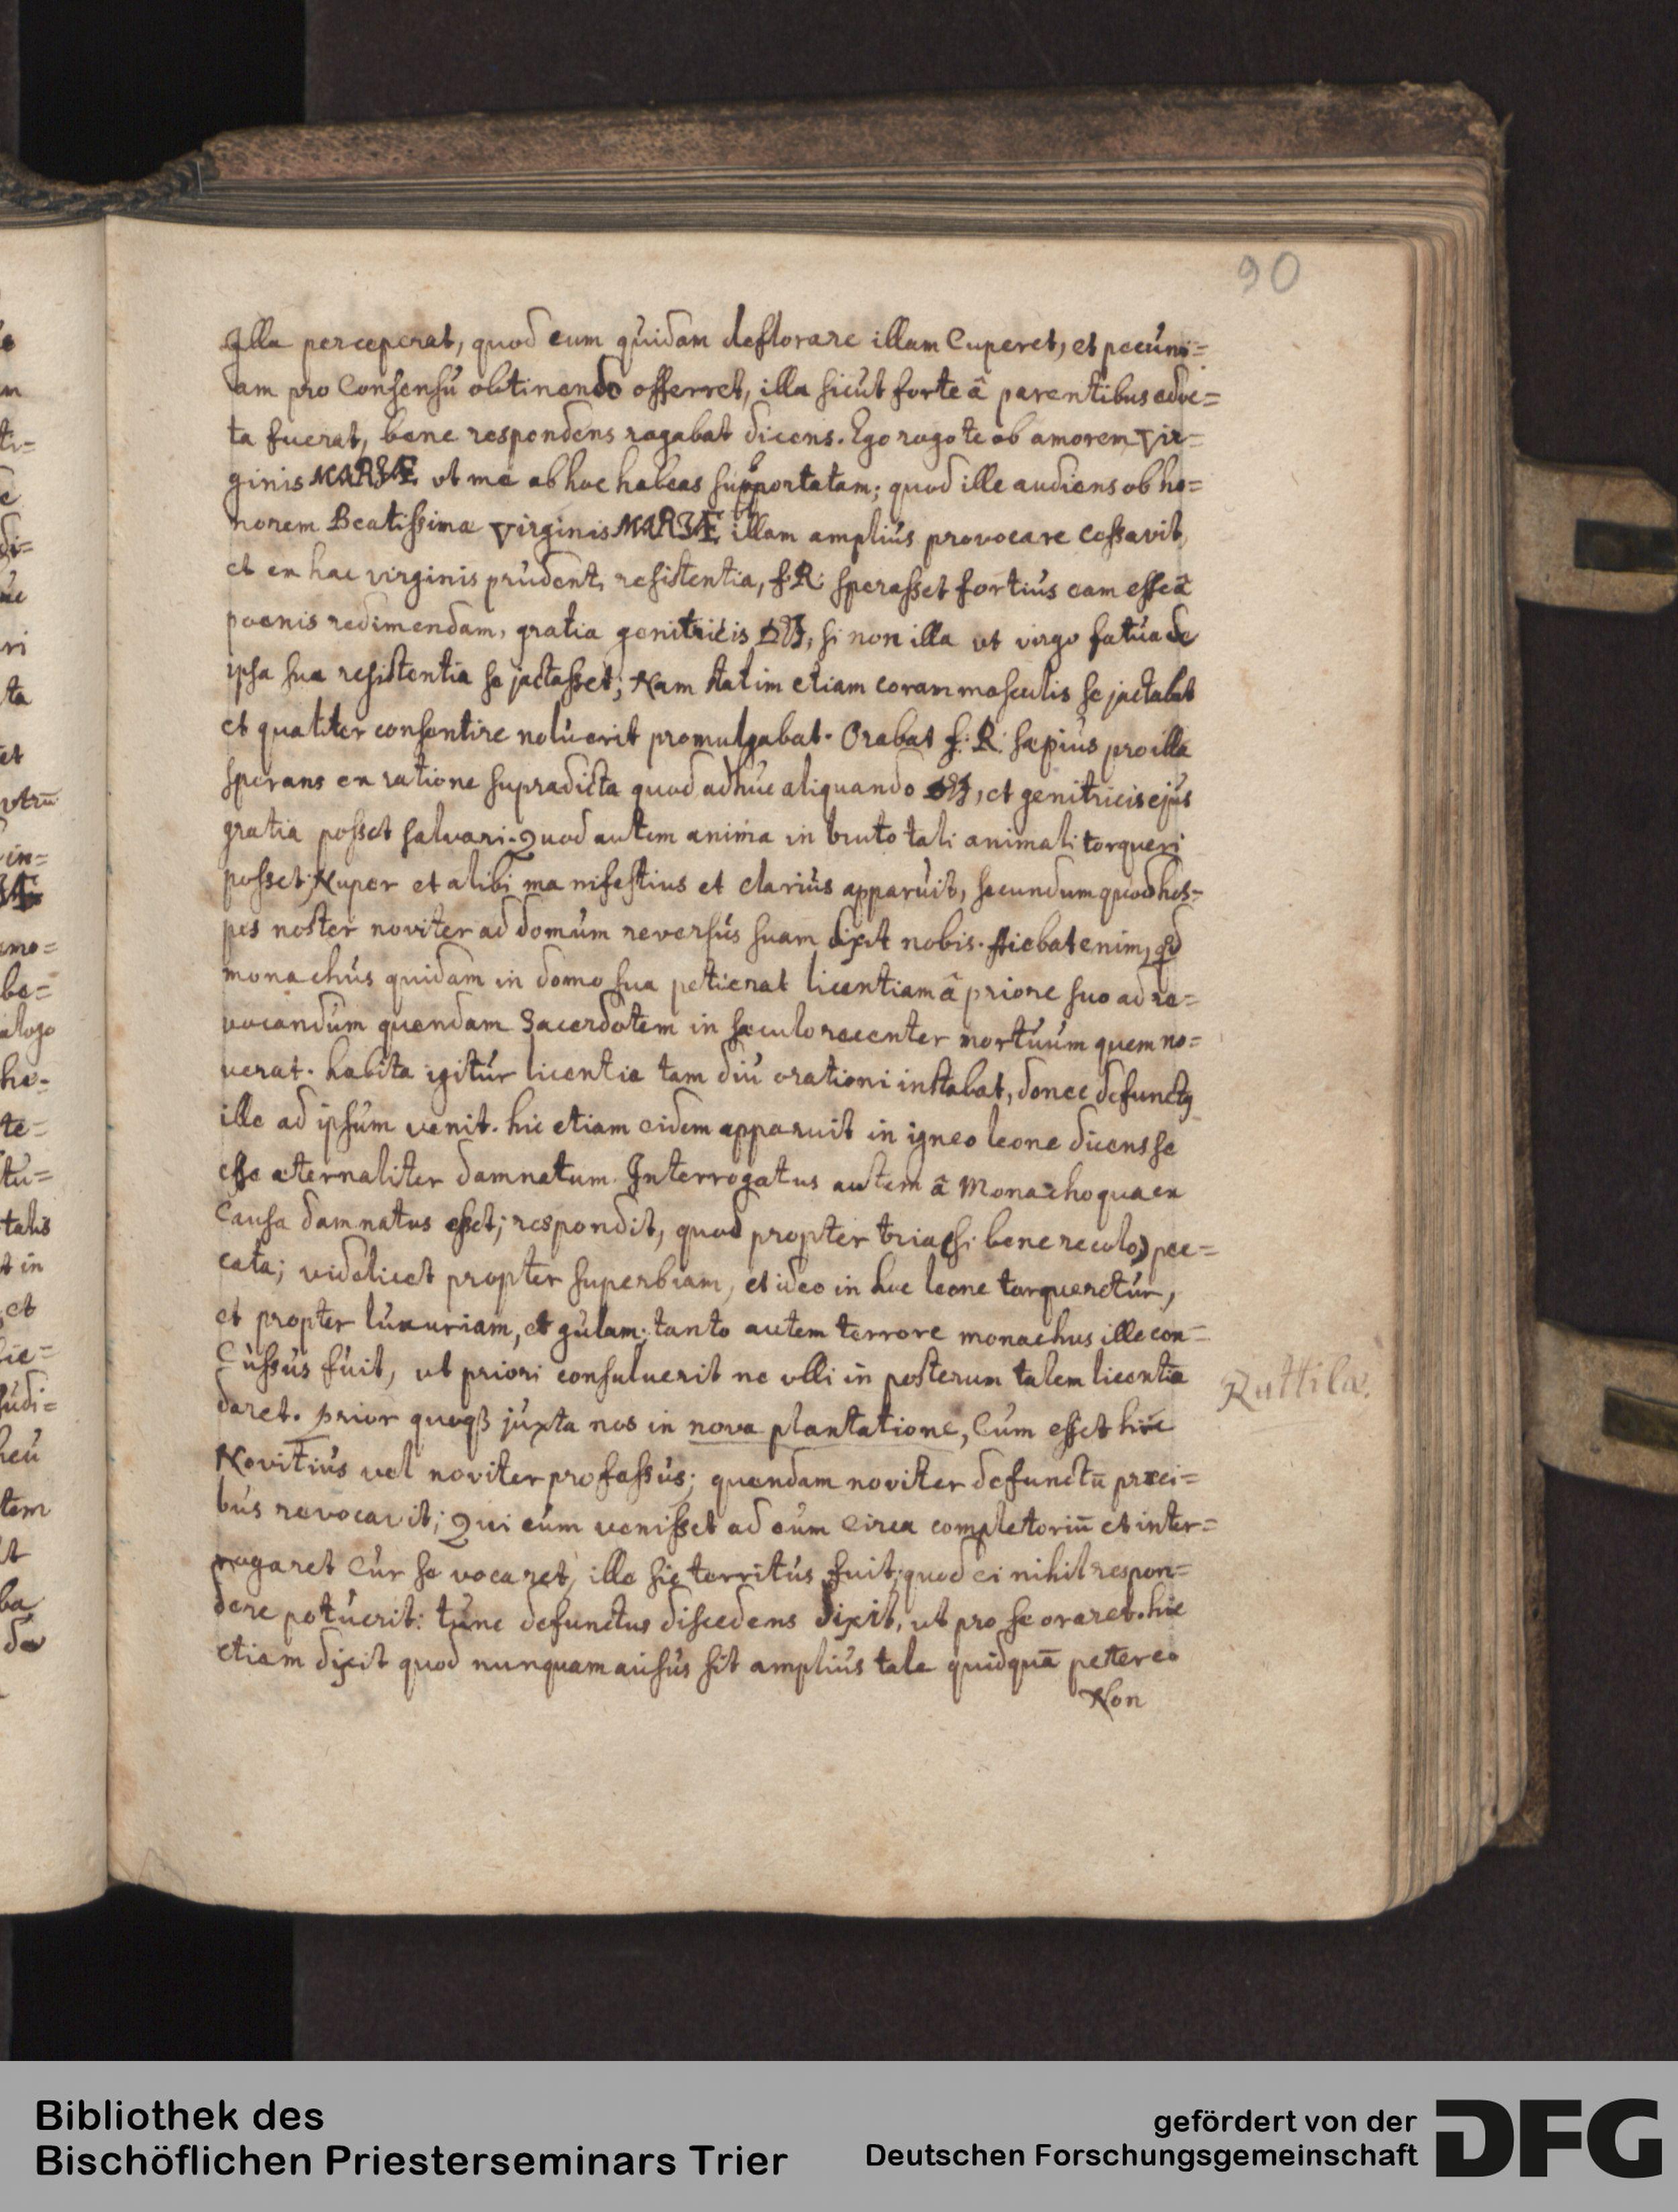 90
Illa perceperat, quod eum quidam deflorare illam cuperet, et pecuni=
am pro consensu obtinendo offerret, illa sicut forte â parentibus edoc=
ta fuerat, bene respondens rogabat dicens. Ego rogo te ob amorem Vir=
ginis MARIÆ ut me ab hoc habeas supportatam; quod ille audiens ob ho=
norem Beatissimæ Virginis MARIÆ illam amplius provocare cessavit,
et ex hac virginis prudenti resistentia, f: R: sperasset fortius eam esse â
poenis redimendam, gratia genitricis DEI, si non illa ut virgo fatua de
ipsa sua resistentia se jactasset; Nam statim etiam coram masculis se jactabat
et qualiter consentire noluerit promulgabat. Orabat f: R: sæpius pro illa
sperans ex ratione supradicta quod adhuc aliquando DEI, et genitricis ejus
gratia posset salvari. Quod autem anima in bruto tali animali torqueri
posset; Nuper et alibi manifestius et clarius apparuit, secundum quod hos-
pes noster noviter ad domum reversus suam dixit nobis. Aiebat enim, qd
monachus quidam in domo sua petierat licentiam â priore suo ad re=
vocandum quendam Sacerdotem in sæculo recenter mortuum quem no=
verat. habita igitur licentia tam diu orationi instabat, donec defunctg
ille ad ipsum venit. hic etiam eidem apparuit in igneo leone dicens se
esse æternaliter damnatum. Interrogatus autem â Monacho qua ex
causa damnatus esset; respondit, quod propter tria (si bene recolo) pec=
cata; videlicet propter superbiam, et ideo in hoc leone torqueretur,
et propter luxuriam, et gulam; tanto autem terrore monachus ille con=
cussus fuit, ut priori consuluerit ne ulli in posterum talem licentiā
daret. prior quoqß juxta nos in nova plantatione, cum esset hic
Rattila.
Novitius vel noviter professus; quendam noviter defunctū preci=
bus revocavit; Qui cum venisset ad eum circa completoriū et inter=
rogaret cur se vocaret, ille sic territus fuit, quod ei nihil respon=
dere potuerit: tunc defunctus discedens dixit, ut pro se oraret. hic
etiam dixit quod nunquam ausus sit amplius tale quidquā petere
Non
Bibliothek des
Bischöflichen Priesterseminars Trier
gefördert von der
Deutschen Forschungsgemeinschaft
DFG